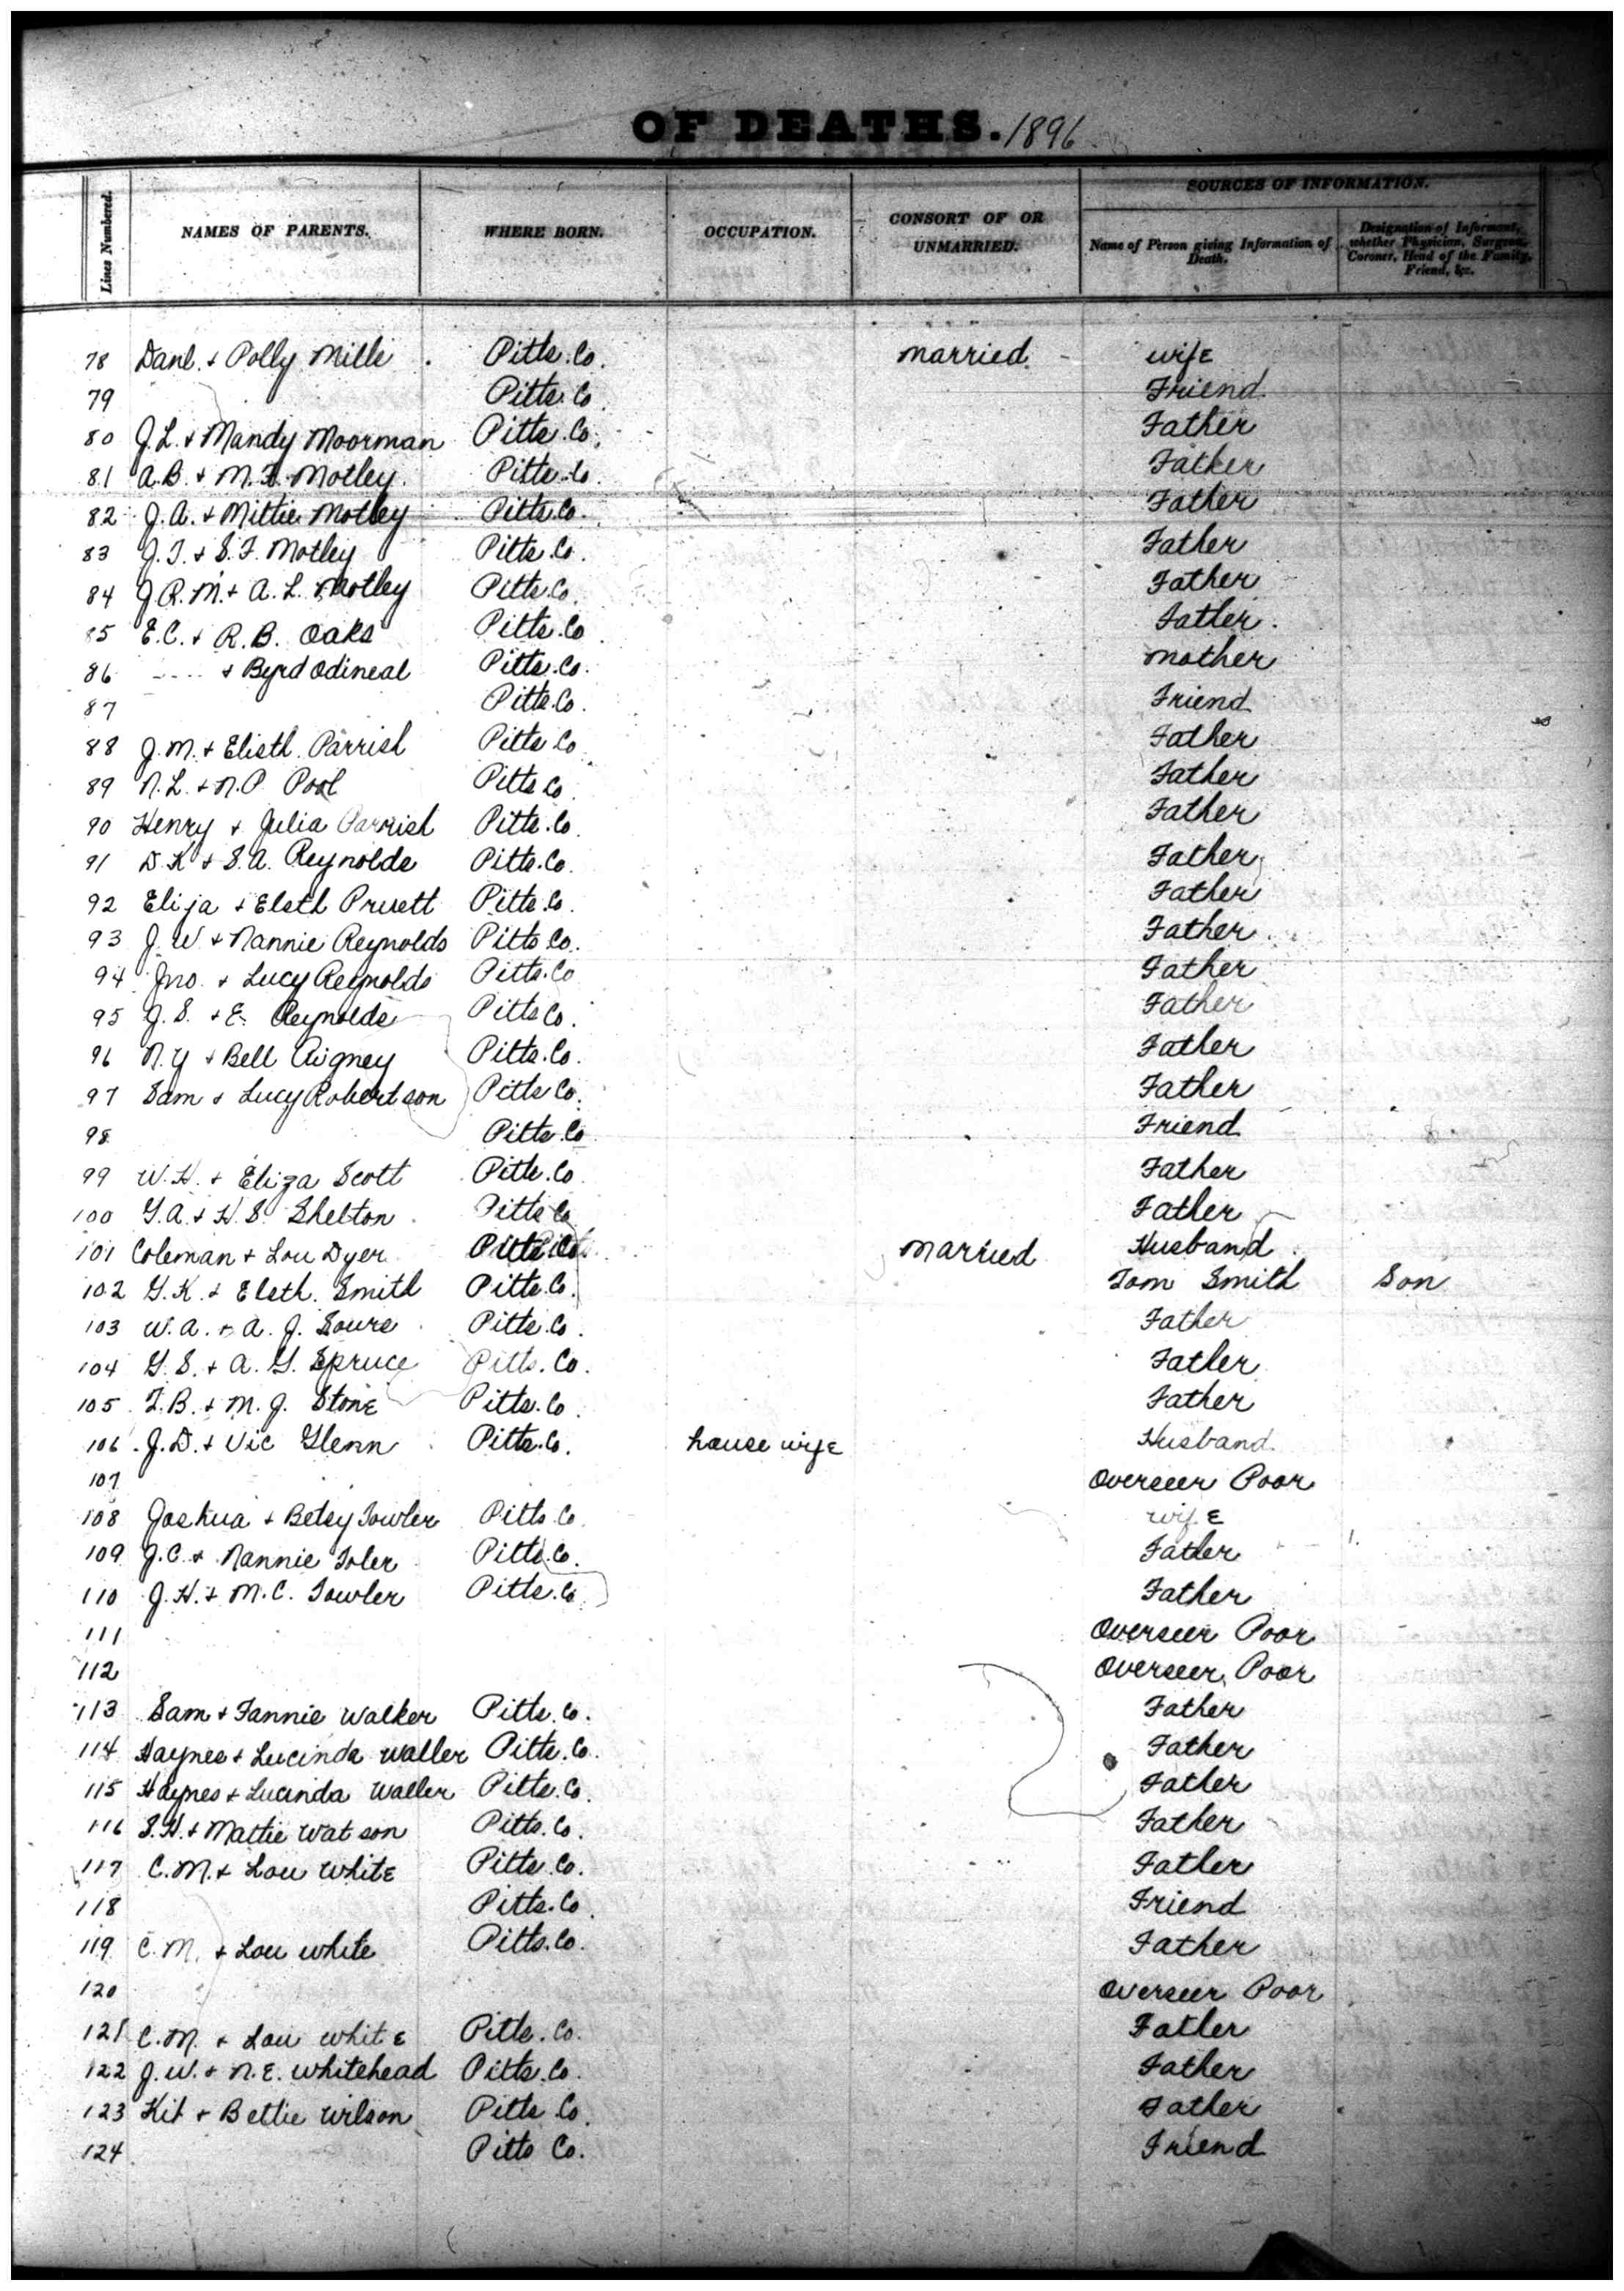 OF DEATHS. 1896
Lines Numbered.
NAMES OF PARENTS.
WHERE BORN.
OCCUPATION.
CONSORT OF OR UNMARRIED.
SOURCES OF INFORMATION.
Name of Person giving Information of Death.
Designation of Informant, whether Physician, Surgeon, Coroner, Head of the Family, Friend, &c.
78 Danl. + Polly Mills Pitts. Co. married. wife
79 Pitts. Co. Friend
80 J. L. + Mandy Moorman Pitts. Co. Father
81 A. B. + M. F. Motley Pitts. Co. Father
82 J. A. + Mittie Motley Pitts. Co. Father
83 J. T. + S. F. Motley Pitts. Co. Father
84 J. R. M. + A. L. Motley Pitts. Co. Father
85 E. C. + R. B. Oaks Pitts. Co. Father
86 ---- + Byrd Odineal Pitts. Co. mother
87 Pitts. Co. Friend
88 J. M. + Elisth. Parrish Pitts Co. Father
89 N. L. + N. P. Pool Pitts Co. Father
90 Henry + Julia Parrish Pitts. Co. Father
91 D. K + S. A. Reynolds Pitts. Co. Father
92 Elija + Elsth Pruett Pitts. Co. Father
93 J. W. + Nannie Reynolds Pitts Co. Father
94 Jno. + Lucy Reynolds Pitts. Co Father
95 J. S. + E. Reynolds Pitts Co. Father
96 N. Y + Bell Rigney Pitts. Co. Father
97 Sam + Lucy Robertson Pitts Co. Father
98 Pitts. Co Friend
99 W. H. + Eliza Scott Pitts. Co Father
100 G. A. + H. S. Shelton Pitts Co Father
101 Coleman + Lou Dyer Pitts Co. married Husband
102 G. K. + Elsth. Smith Pitts. Co. Tom Smith Son
103 W. A. + A. J. Soure Pitts. Co. Father
104 G. S. + A. G. Spruce Pitts. Co. Father
105 T. B. + M. J. Stone Pitts. Co. Father
106 J. D. + Vic Glenn Pitts. Co. house wife Husband
107 Overseer Poor
108 Joshua + Betsy Towler Pitts. Co. wife
109 J. C. + Nannie Toler Pitts. Co. Father
110 J. H. + M. C. Towler Pitts. Co Father
111 Overseer Poor
112 Overseer Poor
113 Sam + Fannie Walker Pitts. Co. Father
114 Haynes + Lucinda Waller Pitts. Co. Father
115 Haynes + Lucinda Waller Pitts. Co. Father
116 S. H. + Mattie Watson Pitts. Co. Father
117 C. M. + Lou White Pitts. Co. Father
118 Pitts. Co. Friend
119 C. M. + Lou White Pitts. Co. Father
120 Overseer Poor
121 C. M. + Lou White Pitts. Co. Father
122 J. W. + N. E. Whitehead Pitts. Co. Father
123 Kit + Bettie Wilson Pitts Co. Father
124 Pitts Co. Friend